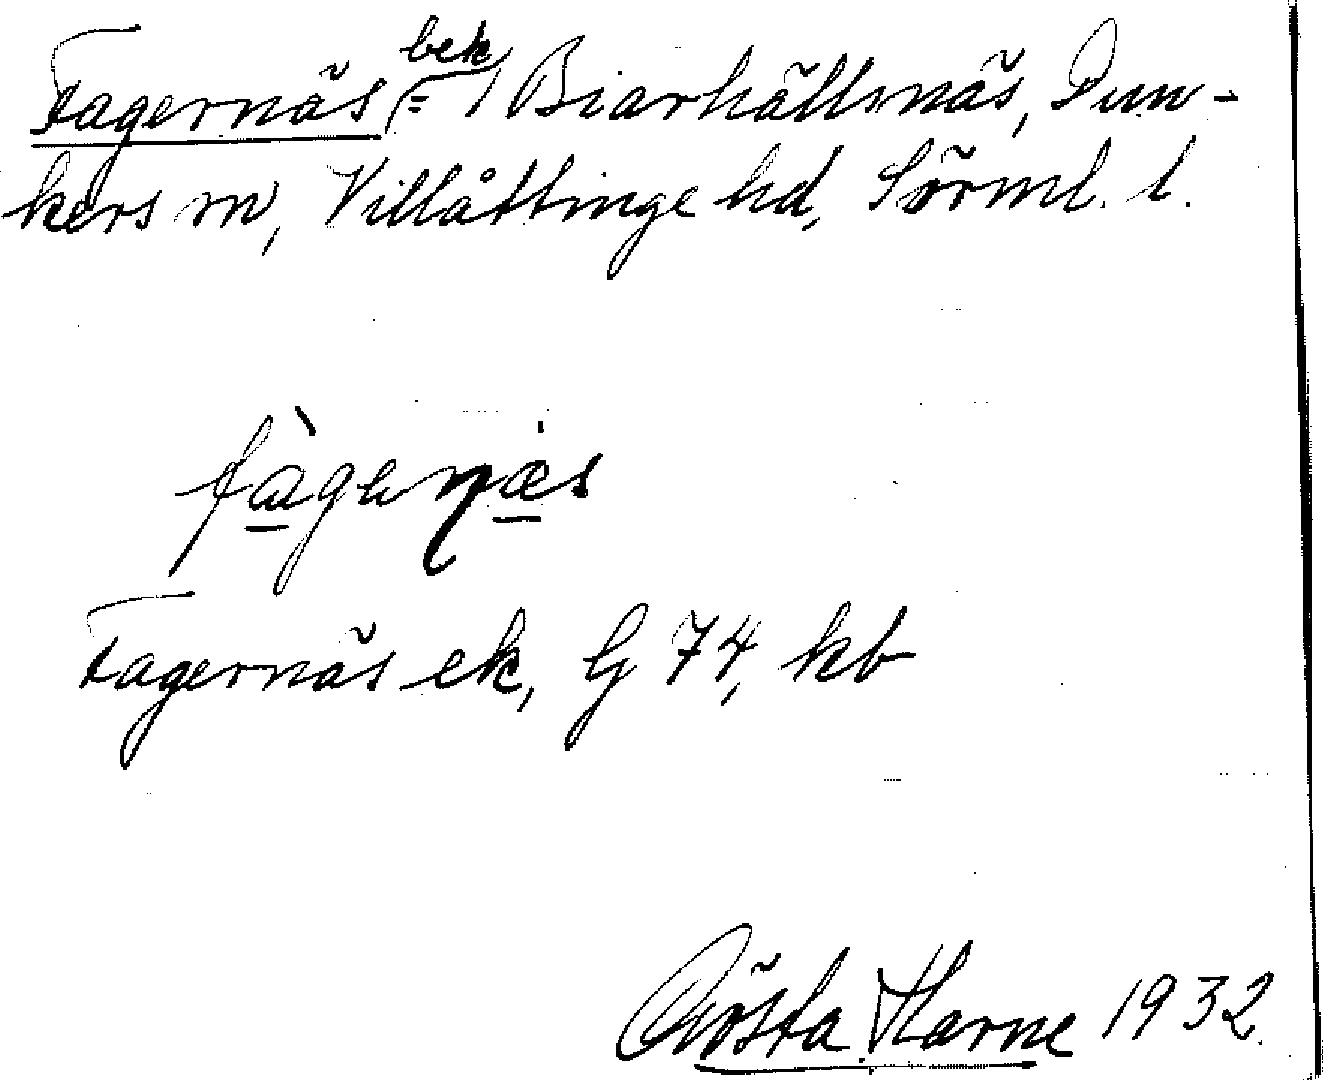 Fagernäs (= bek) Biarhällsnäs, Dun-
kers sn, Villåttinge hd, Sörml. l.
fàgeṇæs
Fagernäs ek, G 74, kb
Gösta Harne 1932.